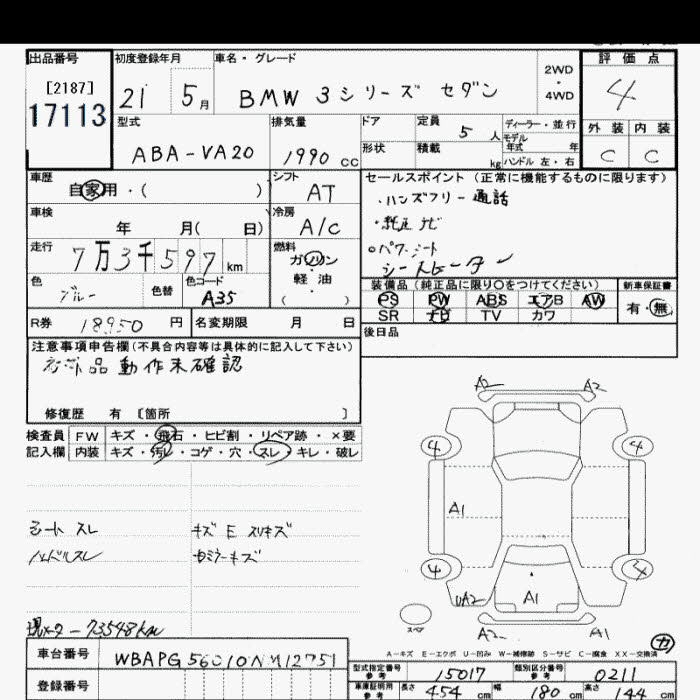 出品番号
[2187]
17113
初度登録年月
21 5月
車名・グレード
BMW 3シリーズ セダン
2WD
・
4WD
評価点
4
外装 内装
C C
型式
ABA-VA20
排気量
1990 cc
ドア
形状
定員
5 人
積載
kg
ディーラー・並行
モデル
年式 年
ハンドル 左・右
車歴
自家用・( )
シフト
AT
車検
年 月( 日)
冷房
A/C
走行
7万3千597 km
燃料
ガソリン
・
軽油
( )
色
ブルー
色替
色コード
A35
R券 18950 円
名変期限 月 日
セールスポイント (正常に機能するものに限ります)
・ハンズフリー通話
・純正ナビ
・パワーシート
シートヒーター
装備品(純正品に限り○をつけてください)
PS PW ABS エアB AW
SR ナビ TV カワ
新車保証書
有・無
後日品
注意事項申告欄(不具合内容等は具体的に記入して下さい)
品動作未確認
修復歴 有 〔箇所 〕
検査員
記入欄
FW キズ・飛石・ヒビ割・リペア跡・×要
内装 キズ・汚レ・コゲ・穴・スレ・キレ・破レ
シート スレ
ハンドルスレ
キズ E スリキズ
現メーター 73548km
A2 A2
4 4
A1
4 4
UA2 A1
A2 A1
スペア
A-キズ E-エクボ U-凹み W-補修跡 S-サビ C-腐食 XX-交換済
車台番号
WBAPG56010NM12751
登録番号
型式指定番号
参考
15017
類別区分番号
参考
0211
車庫証明用
参考
長さ 454 cm
幅 180 cm
高さ 144 cm